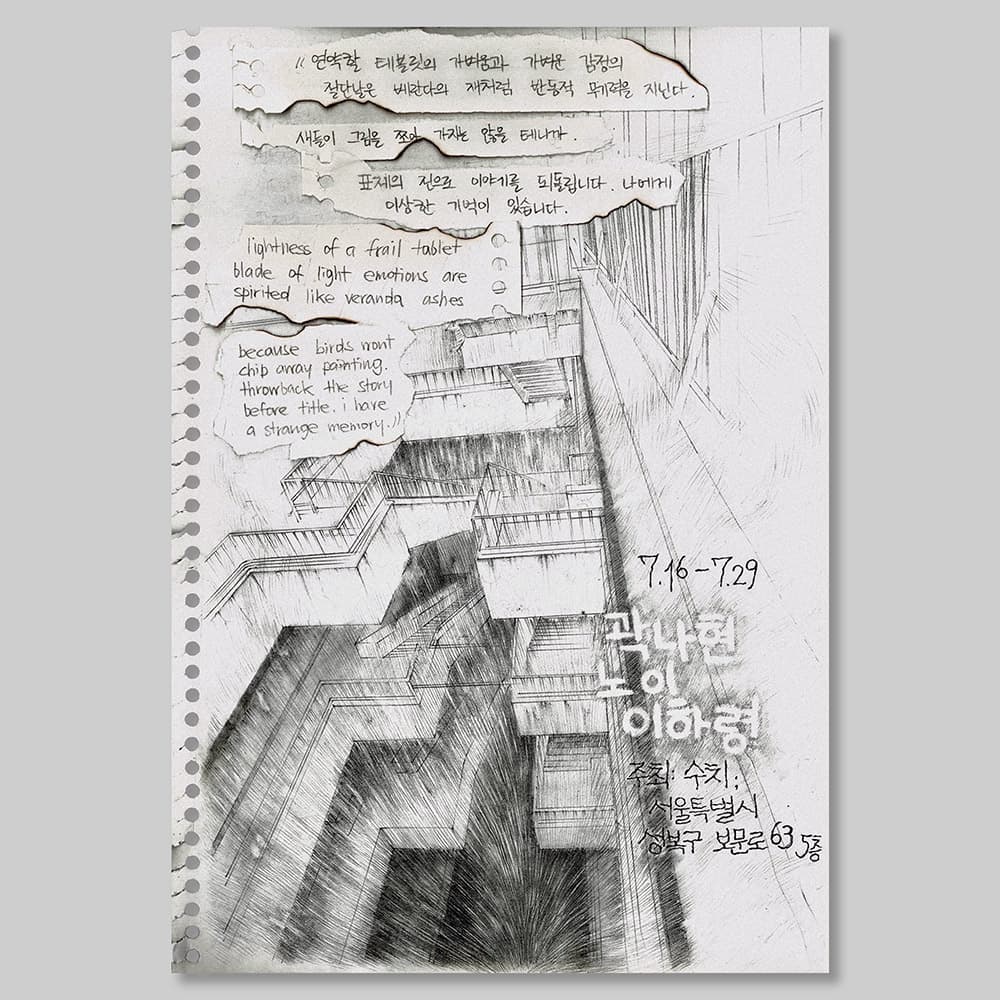 “연약할 테블릿의 가벼움과 가벼운 감정의
절단날은 베란다의 재처럼 반동적 무기력을 지닌다.
새들이 그림을 쪼아 가지는 않을 테니까.
표제의 전으로 이야기를 되돌립니다. 나에게
이상한 기억이 있습니다.
lightness of a frail tablet
blade of light emotions are
spirited like veranda ashes
because birds wont
chip away painting.
throwback the story
before title. i have
a strange memory.”
7.16-7.29
곽나현
노이
이하령
주최: 수치;
서울특별시
성북구 보문로 63 5층